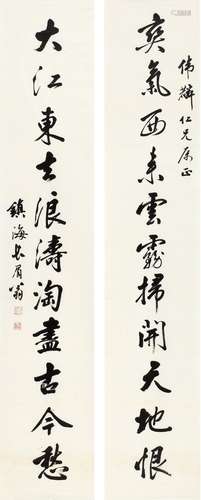 偉麟仁兄属正
爽氣西来雲霧掃開天地恨
大江東去浪濤淘盡古今愁
鎮海長眉翁